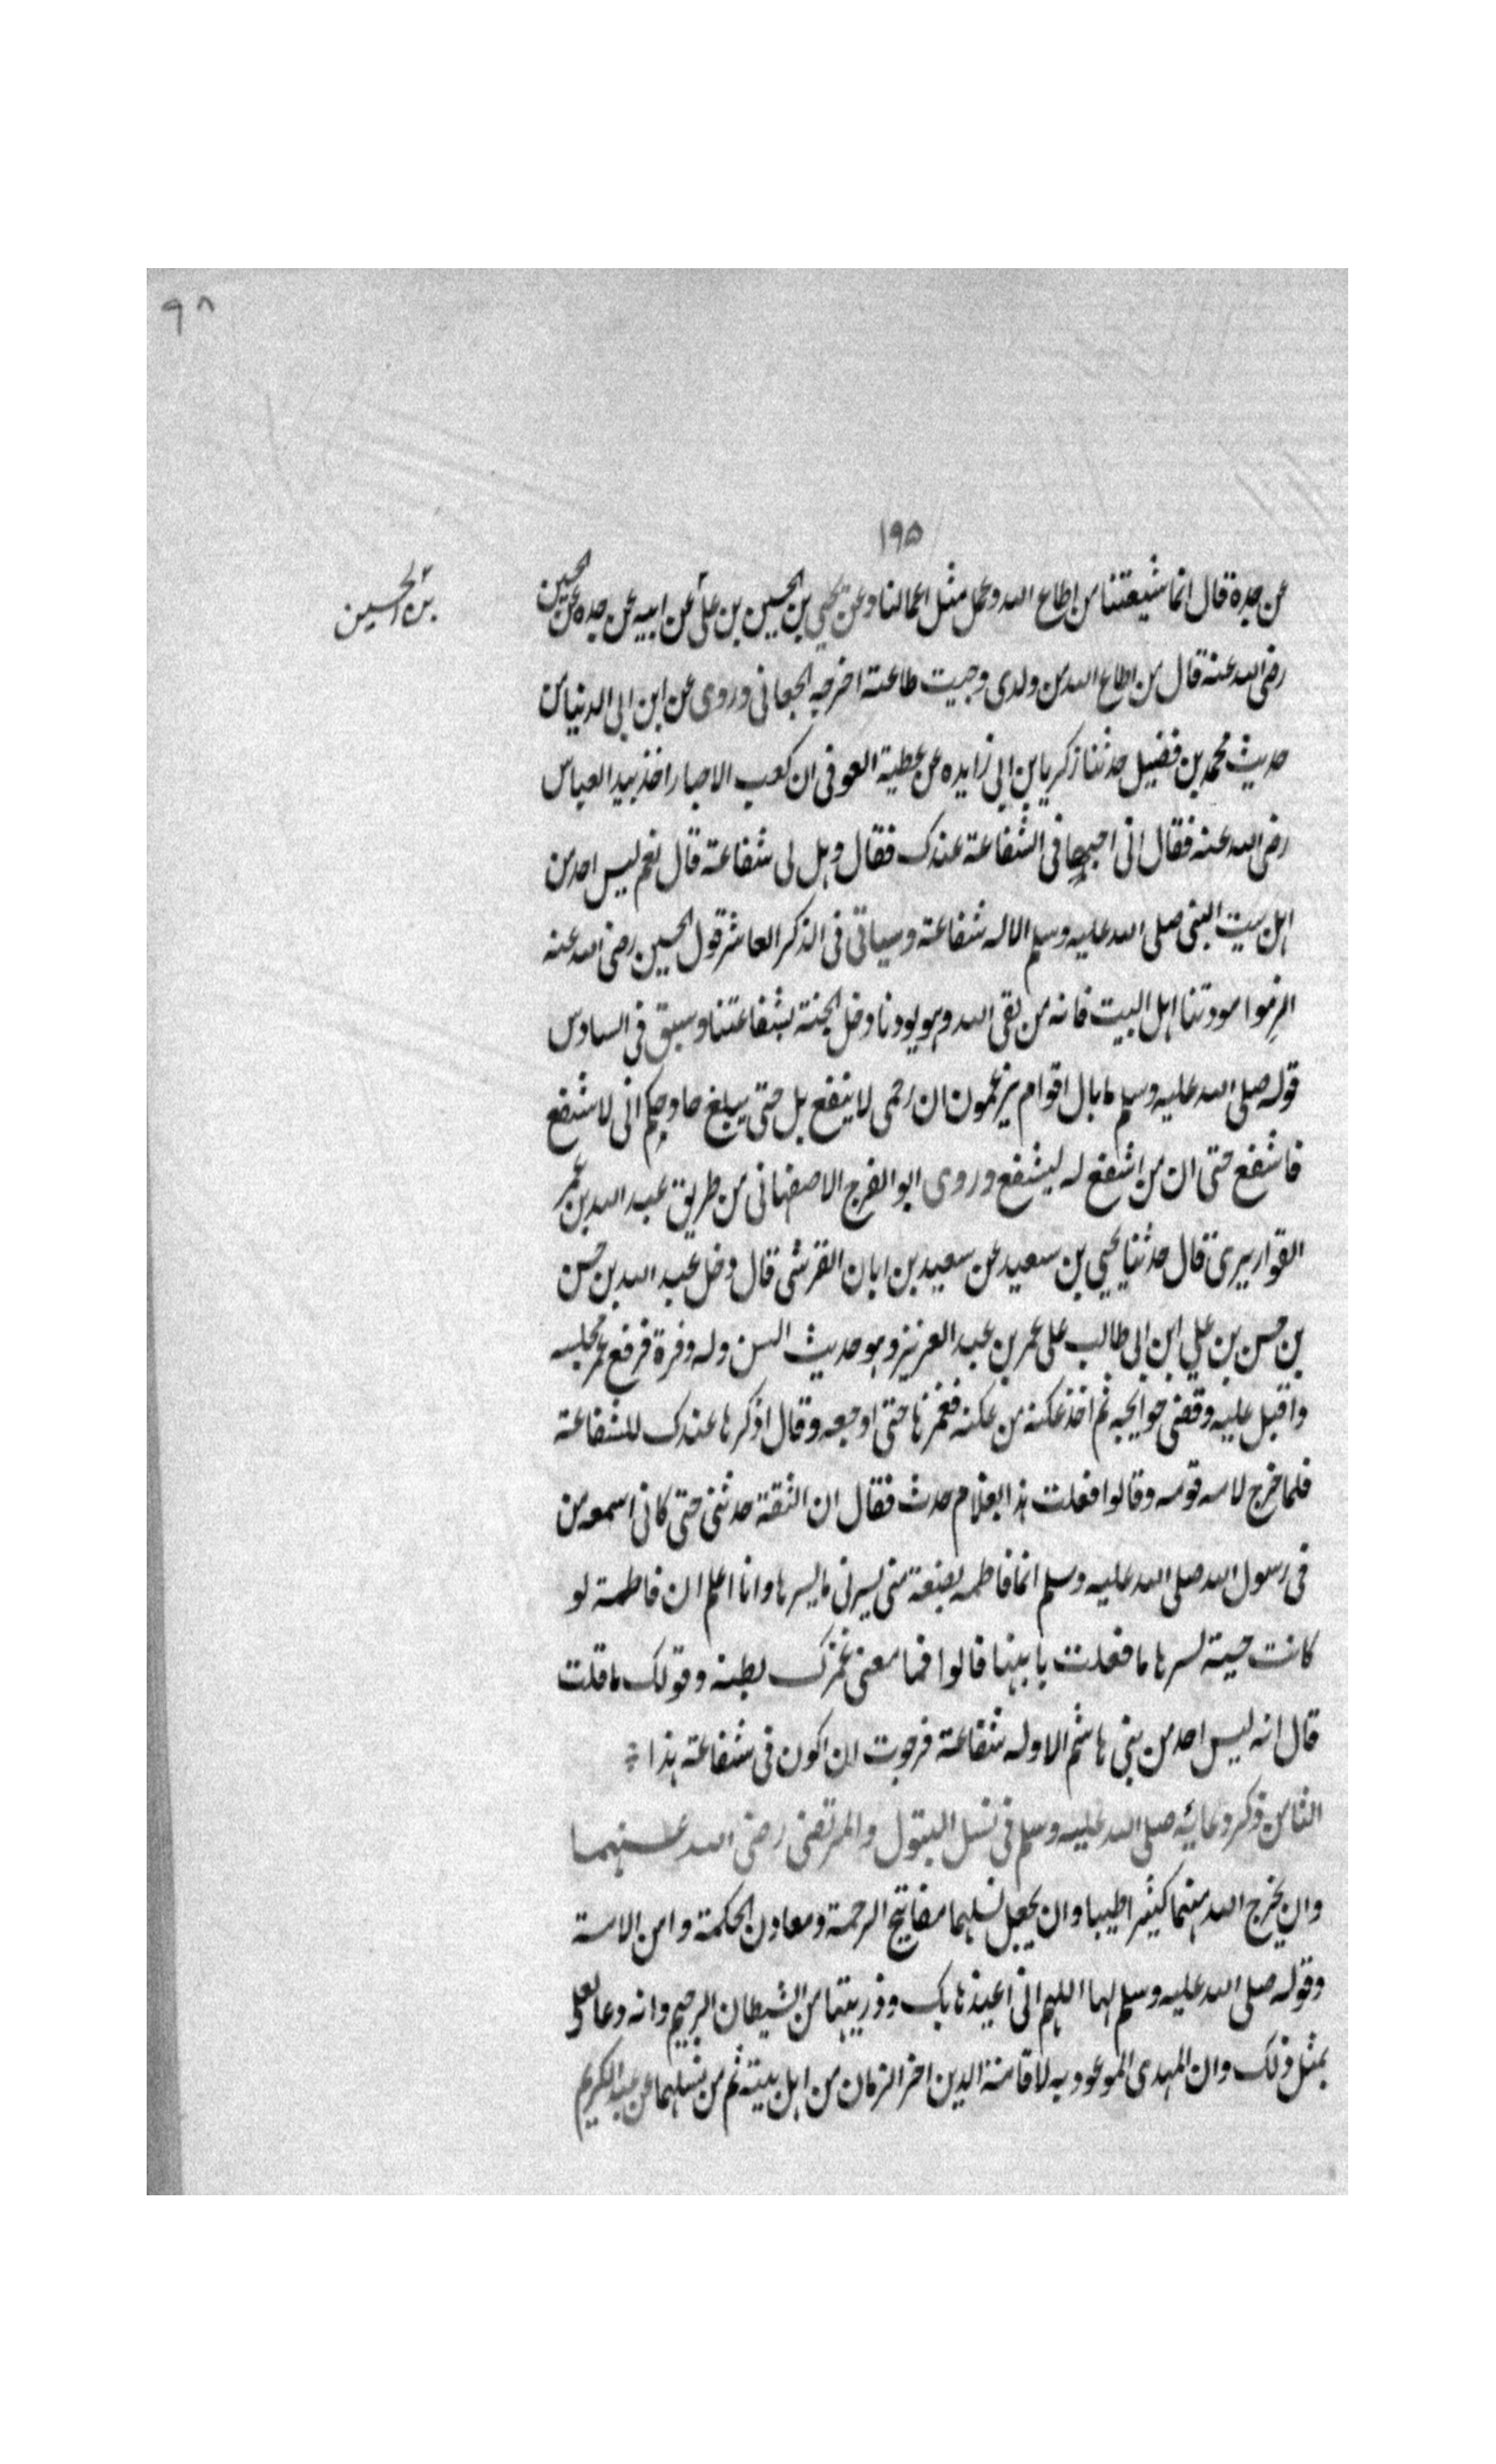 ٩٨
١٩٥
عن جده قال انما شيعتنا من اطاع الله وعمل مثل اعمالنا وعن يحيي بن الحسين بن علي عن ابيه عن جده عن الحسين
بن الحسين
رضى الله عنه قال من اطاع الله من ولدى وجبت طاعته اخرجه الجعابى وروى عن ابن ابى الدنيا من
حديث محمد بن فضيل حدثنا زكريا بن ابي زايده عن عطية العوفى ان كعب الاحبار اخذ بيد العباس
رضى الله عنه فقال انى اختبيها فى الشفاعة عندك فقال وهل لى شفاعة قال نعم ليس احد من
اهل بيت النبى صلى الله عليه وسلم الا له شفاعة وسياتى فى الذكر العاشر قول الحسين رضى الله عنه
الزموا مودتنا اهل البيت فانه من لقى الله وهو يودنا دخل الجنة بشفاعتنا وسبق فى السادس
قوله صلى الله عليه وسلم ما بال اقوام يزعمون ان رحمى لا ينفع بل حتى يبلغ حا وحكم انى لا شفع
فاشفع حتى ان من اشفع له ليشفع وروى ابو الفرج الاصفهانى من طريق عبد الله بن عمر
القواريرى قال حدثنا يحيي بن سعيد عن سعيد بن ابان القرشى قال دخل عبد الله بن حسن
بن حسن بن علي ابن ابى طالب على عمر بن عبد العزيز وهو حديث السن وله وفرة فرفع عمر مجلسه
واقبل عليه وقضى حوايجه ثم اخذ عكنه من عكنه فغمزها حتى اوجعه وقال اذكرها عندك للشفاعة
فلما خرج لامه قومه وقالوا فعلت هذا بغلام حدث فقال ان الثقة حدثنى حتى كانى اسمعه من
فى رسول الله صلى الله عليه وسلم انما فاطمه بضعة منى يسرنى ما يسرها وانا اعلم ان فاطمة لو
كانت حية لسرها ما فعلت بابنها قالوا فما معنى غمزك بطنه وقولك ما قلت
قال انه ليس احد من بنى هاشم الا وله شفاعة فرجوت ان اكون فى شفاعة هذا
الثامن ذكر دعائه صلى الله عليه وسلم فى نسل البتول والمرتضى رضى الله عنهما
وان يخرج الله منهما كثيرا طيبا وان يجعل نسلهما مفاتيح الرحمة ومعادن الحكمة وامن الامة
وقوله صلى الله عليه وسلم لها اللهم انى اعيذها بك وذريتها من الشيطان الرجيم وانه دعا لعلى
بمثل ذلك وان المهدى الموعود به لاقامة الدين اخر الزمان من اهل بيته ثم من نسلهما عن عبد الكريم